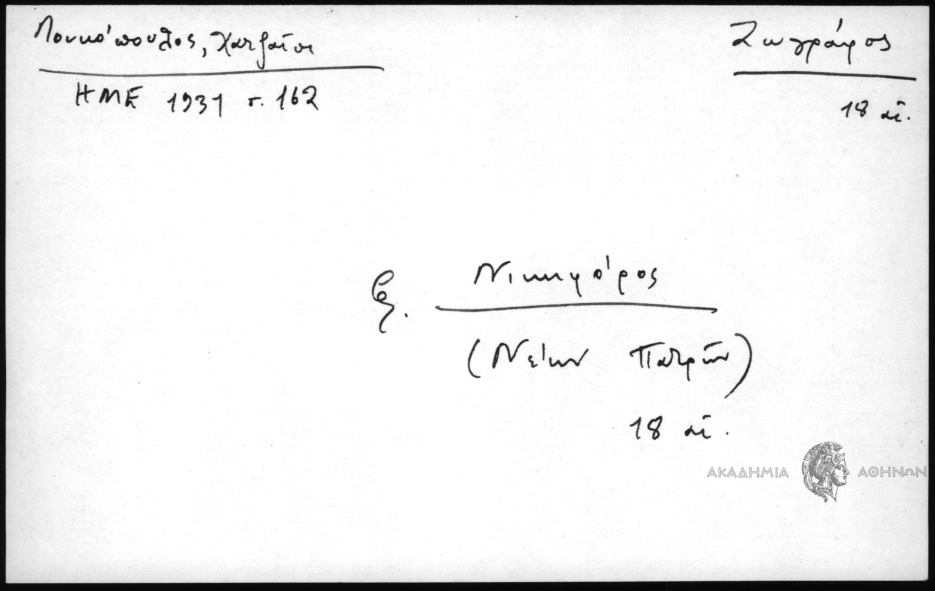 Λουκόπουλος, Χατζαῖοι
ΗΜΕ 1931 σ. 162
Ζωγράφος
18 αἰ.
ξ. Νικηφόρος
(Νείων Πατρῶν)
18 αἰ.
ΑΚΑΔΗΜΙΑ ΑΘΗΝΩΝ